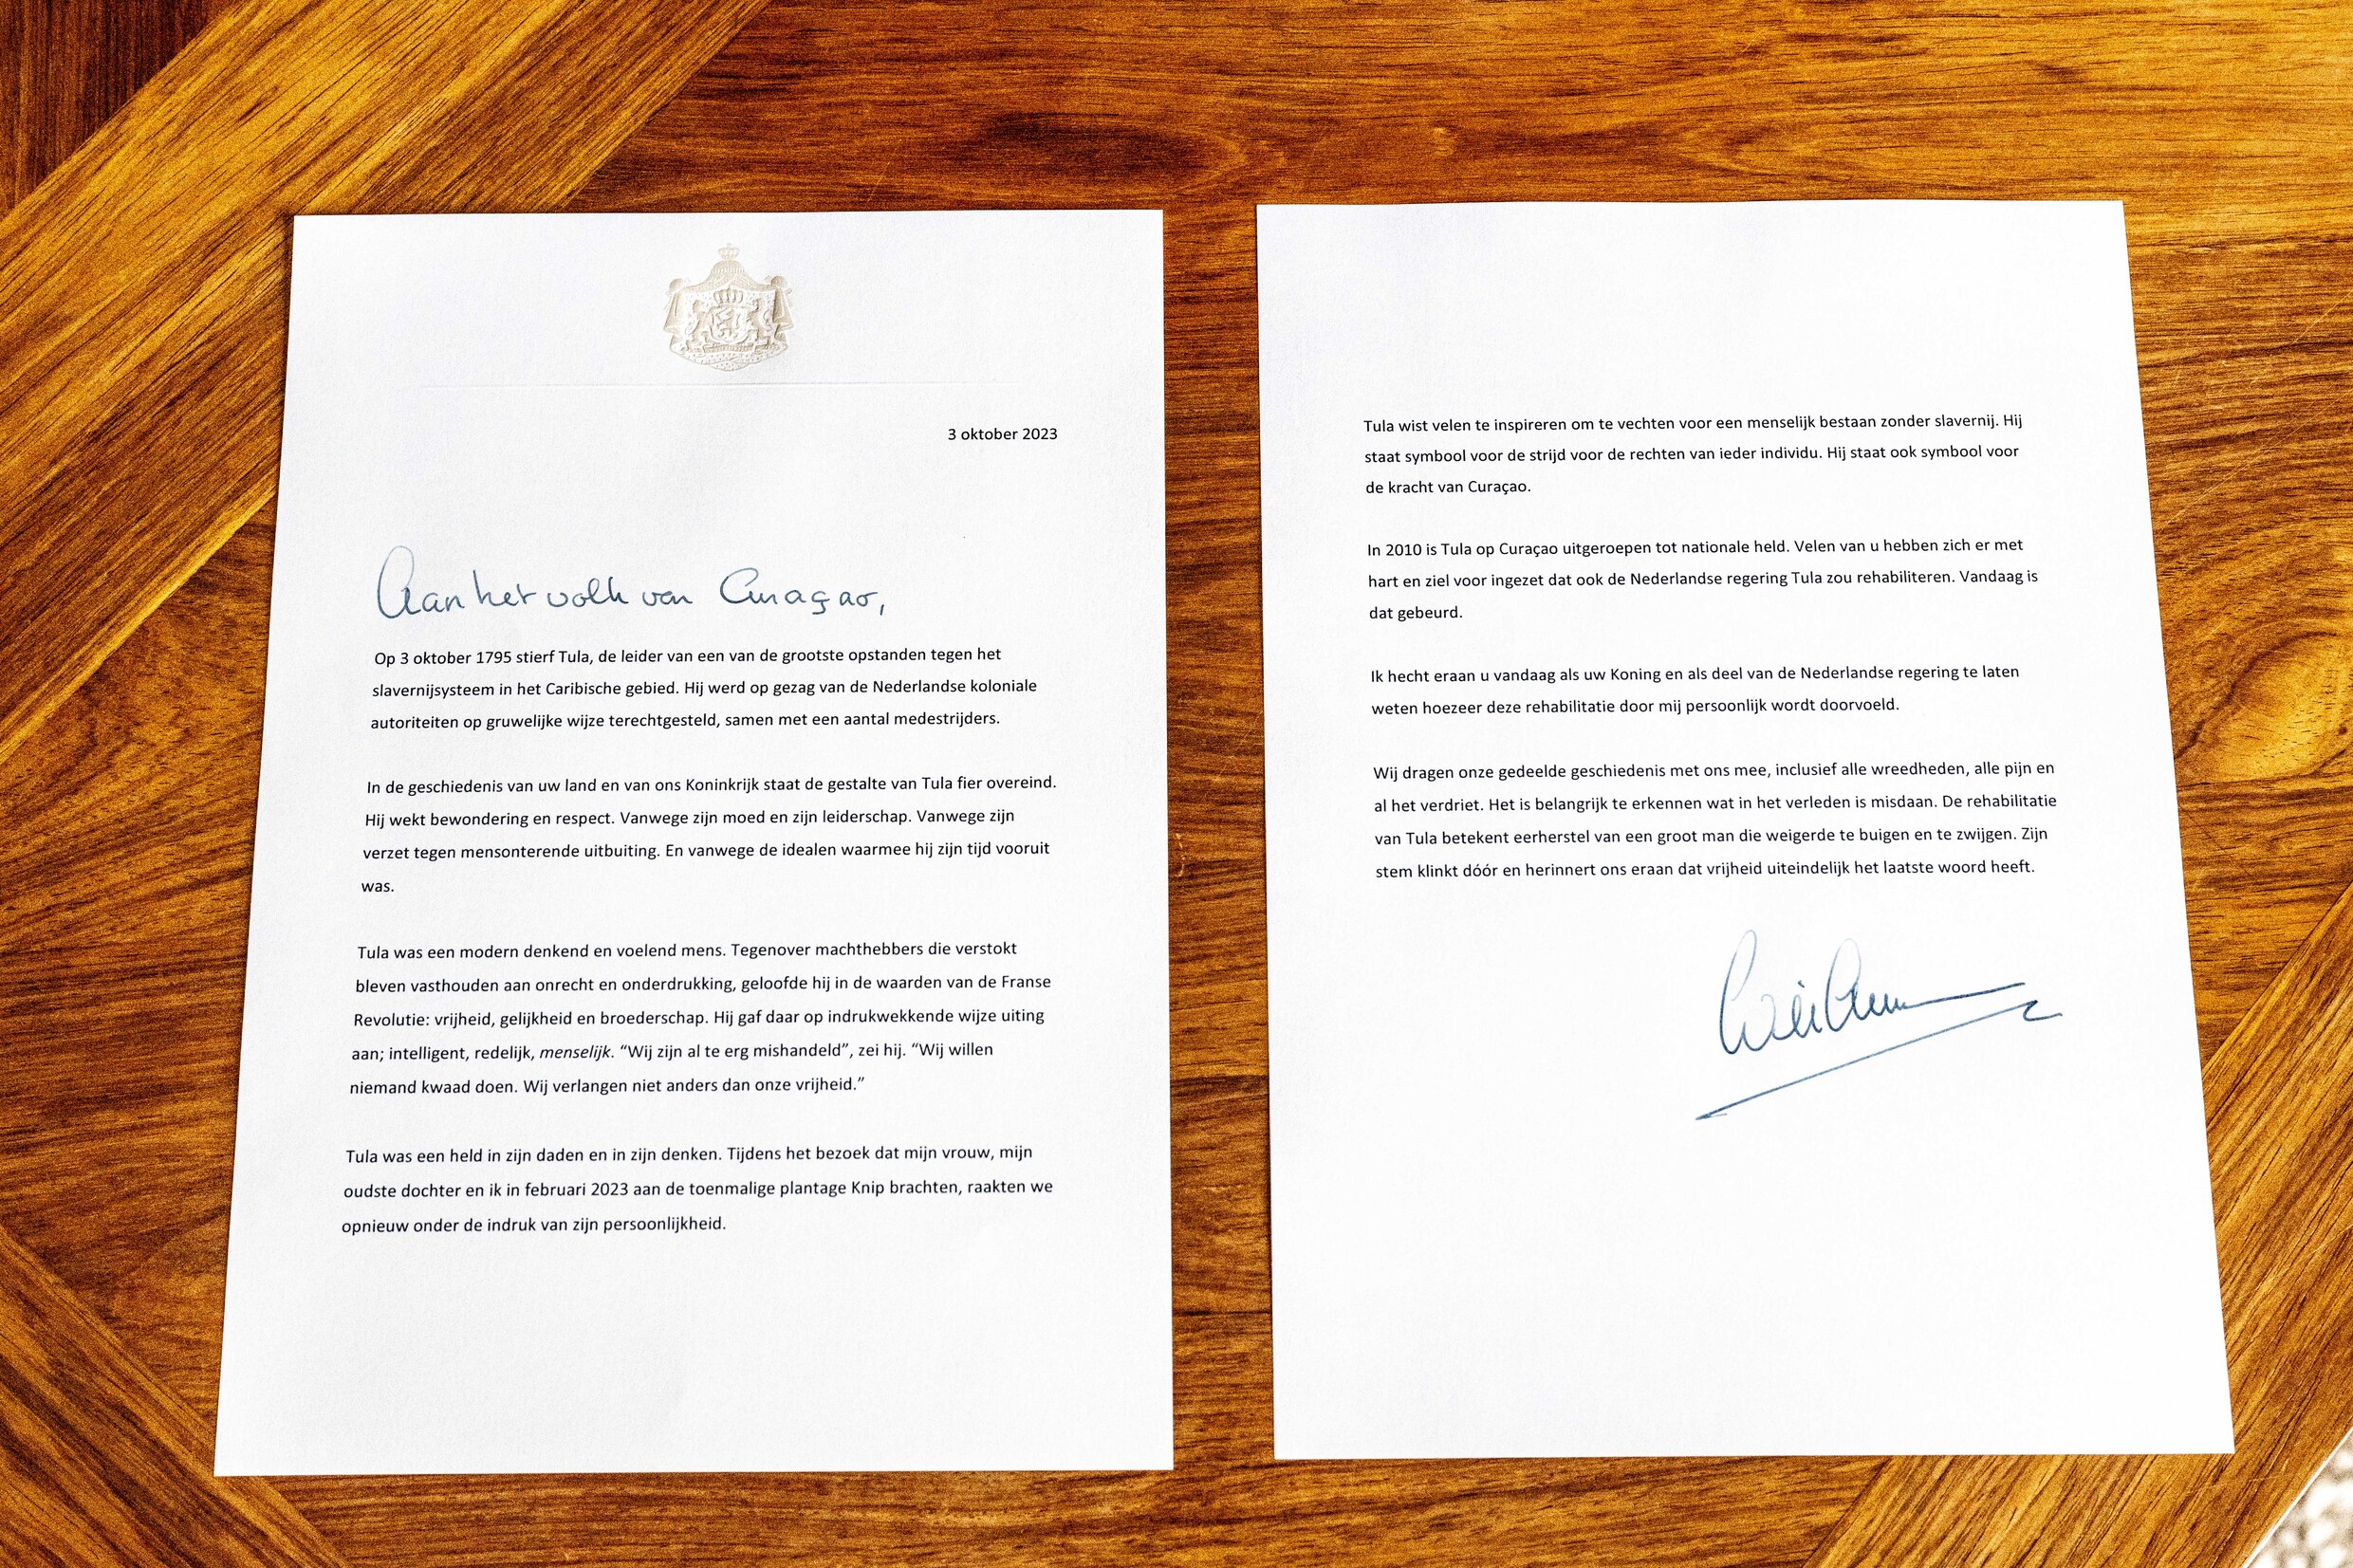 3 oktober 2023
Aan het volk van Curaçao,
Op 3 oktober 1795 stierf Tula, de leider van een van de grootste opstanden tegen het
slavernijsysteem in het Caribische gebied. Hij werd op gezag van de Nederlandse koloniale
autoriteiten op gruwelijke wijze terechtgesteld, samen met een aantal medestrijders.
In de geschiedenis van uw land en van ons Koninkrijk staat de gestalte van Tula fier overeind.
Hij wekt bewondering en respect. Vanwege zijn moed en zijn leiderschap. Vanwege zijn
verzet tegen mensonterende uitbuiting. En vanwege de idealen waarmee hij zijn tijd vooruit
was.
Tula was een modern denkend en voelend mens. Tegenover machthebbers die verstokt
bleven vasthouden aan onrecht en onderdrukking, geloofde hij in de waarden van de Franse
Revolutie: vrijheid, gelijkheid en broederschap. Hij gaf daar op indrukwekkende wijze uiting
aan; intelligent, redelijk, menselijk. “Wij zijn al te erg mishandeld”, zei hij. “Wij willen
niemand kwaad doen. Wij verlangen niet anders dan onze vrijheid.”
Tula was een held in zijn daden en in zijn denken. Tijdens het bezoek dat mijn vrouw, mijn
oudste dochter en ik in februari 2023 aan de toenmalige plantage Knip brachten, raakten we
opnieuw onder de indruk van zijn persoonlijkheid.
Tula wist velen te inspireren om te vechten voor een menselijk bestaan zonder slavernij. Hij
staat symbool voor de strijd voor de rechten van ieder individu. Hij staat ook symbool voor
de kracht van Curaçao.
In 2010 is Tula op Curaçao uitgeroepen tot nationale held. Velen van u hebben zich er met
hart en ziel voor ingezet dat ook de Nederlandse regering Tula zou rehabiliteren. Vandaag is
dat gebeurd.
Ik hecht eraan u vandaag als uw Koning en als deel van de Nederlandse regering te laten
weten hoezeer deze rehabilitatie door mij persoonlijk wordt doorvoeld.
Wij dragen onze gedeelde geschiedenis met ons mee, inclusief alle wreedheden, alle pijn en
al het verdriet. Het is belangrijk te erkennen wat in het verleden is misdaan. De rehabilitatie
van Tula betekent eerherstel van een groot man die weigerde te buigen en te zwijgen. Zijn
stem klinkt dóór en herinnert ons eraan dat vrijheid uiteindelijk het laatste woord heeft.